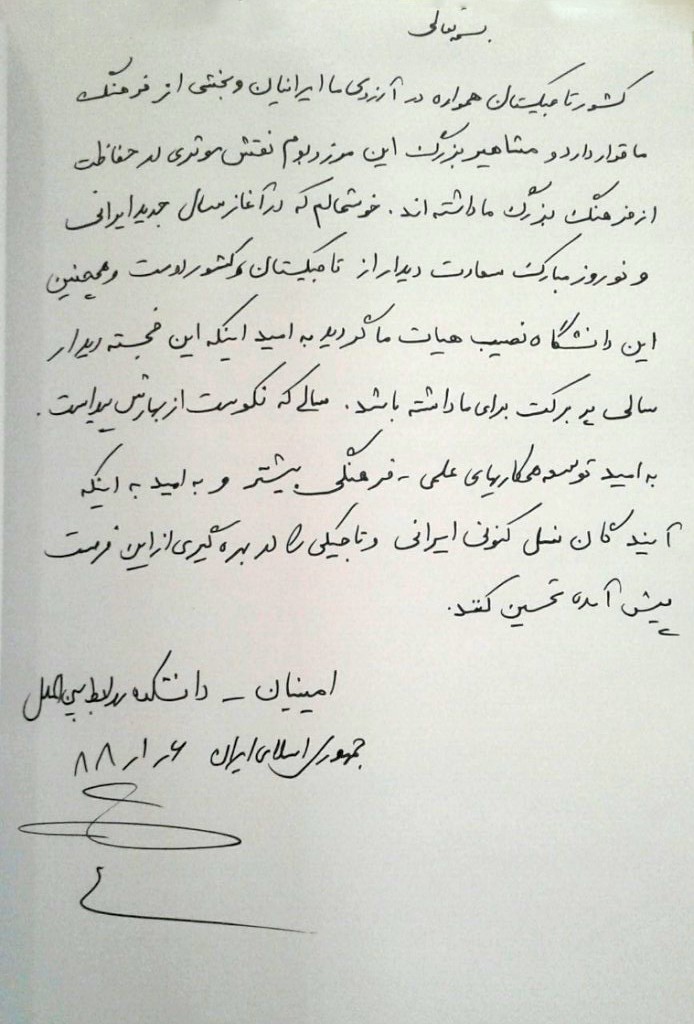 بسمه تعالی
کشور تاجیکستان همواره در آرزوی ما ایرانیان و بخشی از فرهنگ
ما قرار دارد و مشاهیر بزرگ این مرز و بوم نقش موثری در حفاظت
از فرهنگ بزرگ ما داشته اند. خوشحالم که در آغاز سال جدید ایرانی
و نوروز مبارک سعادت دیدار از تاجیکستان کشور دوست و همچنین
این دانشگاه نصیب هیات ما گردید به امید اینکه این خجسته دیدار
سالی پر برکت برای ما داشته باشد. سالی که نکوست از بهارش پیداست.
به امید توسعه همکاریهای علمی - فرهنگی بیشتر و به امید به اینکه
آیندگان نسل کنونی ایرانی و تاجیکی را در بهره گیری از این فرصت
پیش آمده تحسین کنند.
امینیان - دانشکده روابط بین الملل
جمهوری اسلامی ایران ۶ر۱ر۸۸